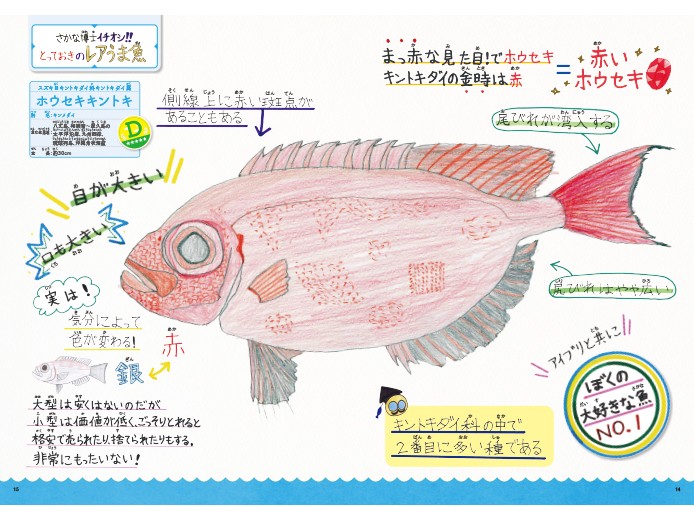 さかな博士イチオシ!!
とっておきのレアうま魚
スズキ目キントキダイ科キントキダイ属
ホウセキキントキ
別 名:キンメダイ
全 長:約30cm
D
側線上に赤い斑点が
あることもある
まっ赤な見た目!でホウセキ
キントキダイの金時は赤
=
赤い
ホウセキ
尾びれが湾入する
目が大きい
口も大きい
実は!
気分によって
色が変わる!
赤
銀
大型は安くはないのだが
小型は価値が低く、ごっそりとれると
格安で売られたり、捨てられたりもする。
非常にもったいない!
尻びれはやや広い
アイブリと共に
ぼくの
大好きな魚
NO.1
キントキダイ科の中で
2番目に多い種である
15
14